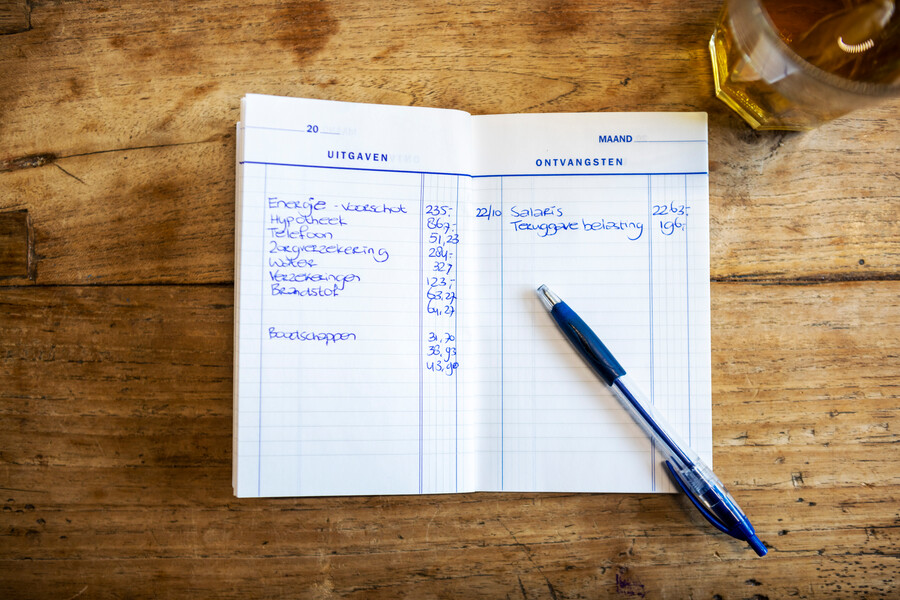 20
UITGAVEN
Energie - voorschot 235,-
Hypotheek 867,-
Telefoon 51,23
Zorgverzekering 284,-
Water 327
Verzekeringen 123,-
Brandstof 63,27
64,27
Boodschappen 31,70
38,93
43,90
MAAND
ONTVANGSTEN
22/10 Salaris 2263,-
Teruggave belasting 196,-